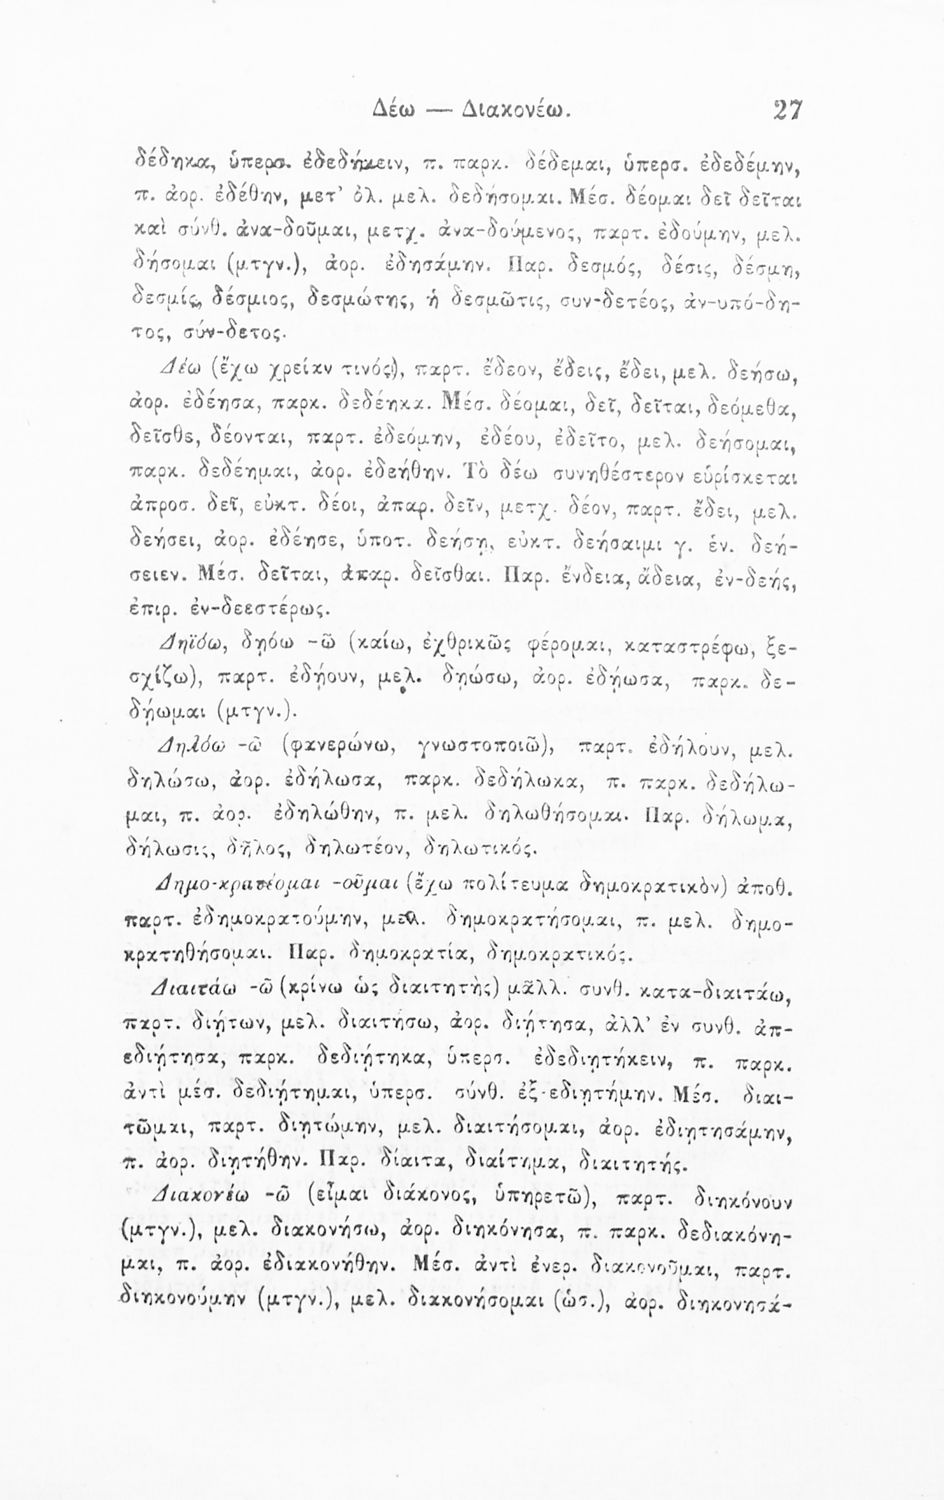 Δέω — Διακονέω. 27
δέδηκα, ὑπερσ. ἐδεδήκειν, π. παρκ. δέδεμαι, ὑπερσ. ἐδεδέμην,
π. ἀορ. ἐδέθην, μετ’ ὀλ. μελ. δεδήσομαι. Μέσ. δέομαι δεῖ δεῖται
καὶ σύνθ. ἀνα-δοῦμαι, μετχ. ἀνα-δούμενος, παρτ. ἐδούμην, μελ.
δήσομαι (μτγν.), ἀορ. ἐδησάμην. Παρ. δεσμός, δέσις, δέσμη,
δεσμίς, δέσμιος, δεσμώτης, ἡ δεσμῶτις, συν-δετέος, ἀν-υπό-δη-
τος, σύν-δετος.
Δέω (ἔχω χρείαν τινός), παρτ. ἔδεον, ἔδεις, ἔδει, μελ. δεήσω,
ἀορ. ἐδέησα, παρκ. δεδέηκα. Μέσ. δέομαι, δεῖ, δεῖται, δεόμεθα,
δεῖσθε, δέονται, παρτ. ἐδεόμην, ἐδέου, ἐδεῖτο, μελ. δεήσομαι,
παρκ. δεδέημαι, ἀορ. ἐδεήθην. Τὸ δέω συνηθέστερον εὑρίσκεται
ἀπροσ. δεῖ, εὐκτ. δέοι, ἀπαρ. δεῖν, μετχ. δέον, παρτ. ἔδει, μελ.
δεήσει, ἀορ. ἐδέησε, ὑποτ. δεήσῃ, εὐκτ. δεήσαιμι γ. ἑν. δεή-
σειεν. Μέσ. δεῖται, ἀπαρ. δεῖσθαι. Παρ. ἔνδεια, ἄδεια, ἐν-δεής,
ἐπιρ. ἐν-δεεστέρως.
Δηϊόω, δηόω -ῶ (καίω, ἐχθρικῶς φέρομαι, καταστρέφω, ξε-
σχίζω), παρτ. ἐδῄουν, μελ. δῃώσω, ἀορ. ἐδῄωσα, παρκ. δε-
δῄωμαι (μτγν.).
Δηλόω -ῶ (φανερώνω, γνωστοποιῶ), παρτ. ἐδήλουν, μελ.
δηλώσω, ἀορ. ἐδήλωσα, παρκ. δεδήλωκα, π. παρκ. δεδήλω-
μαι, π. ἀορ. ἐδηλώθην, π. μελ. δηλωθήσομαι. Παρ. δήλωμα,
δήλωσις, δῆλος, δηλωτέον, δηλωτικός.
Δημο-κρατέομαι -οῦμαι (ἔχω πολίτευμα δημοκρατικὸν) ἀποθ.
παρτ. ἐδημοκρατούμην, μελ. δημοκρατήσομαι, π. μελ. δημο-
κρατηθήσομαι. Παρ. δημοκρατία, δημοκρατικός.
Διαιτάω -ῶ (κρίνω ὡς διαιτητὴς) μᾶλλ. συνθ. κατα-διαιτάω,
παρτ. διῄτων, μελ. διαιτήσω, ἀορ. διῄτησα, ἀλλ’ ἐν συνθ. ἀπ-
εδιῄτησα, παρκ. δεδιῄτηκα, ὑπερσ. ἐδεδιῃτήκειν, π. παρκ.
ἀντὶ μέσ. δεδιῄτημαι, ὑπερσ. σύνθ. ἐξ-εδιῃτήμην. Μέσ. διαι-
τῶμαι, παρτ. διῃτώμην, μελ. διαιτήσομαι, ἀορ. ἐδιῃτησάμην,
π. ἀορ. διῃτήθην. Παρ. δίαιτα, διαίτημα, διαιτητής.
Διακονέω -ῶ (εἶμαι διάκονος, ὑπηρετῶ), παρτ. διηκόνουν
(μτγν.), μελ. διακονήσω, ἀορ. διηκόνησα, π. παρκ. δεδιακόνη-
μαι, π. ἀορ. ἐδιακονήθην. Μέσ. ἀντὶ ἐνερ. διακονοῦμαι, παρτ.
διηκονούμην (μτγν.), μελ. διακονήσομαι (ὡσ.), ἀορ. διηκονησά-